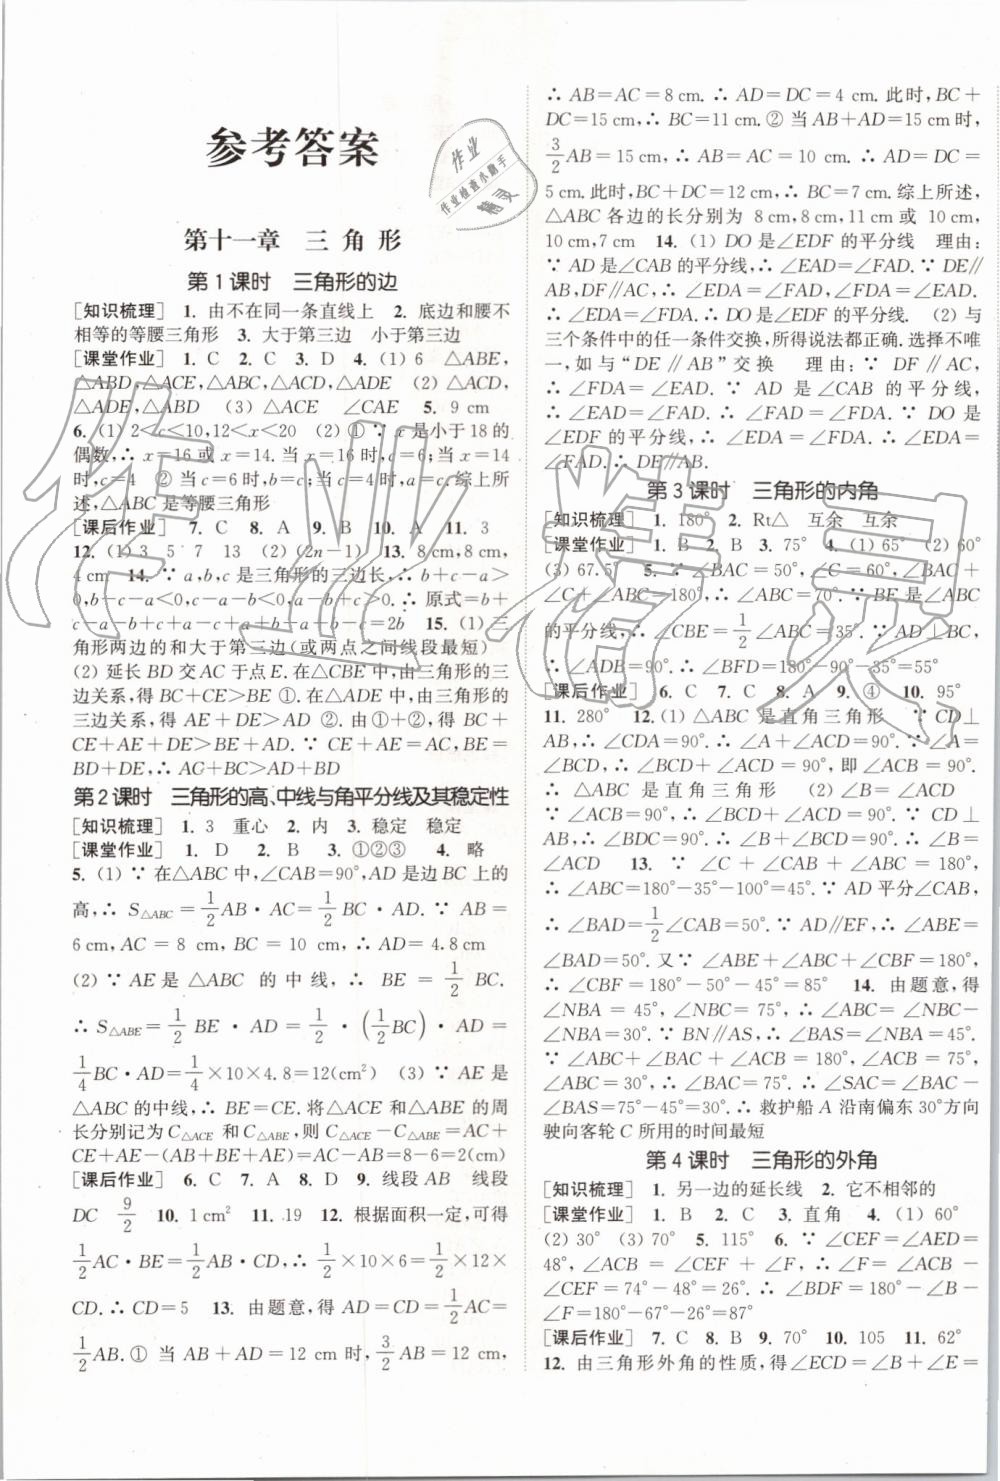 参考答案
第十一章 三角形
第1课时 三角形的边
[知识梳理] 1. 由不在同一条直线上 2. 底边和腰不
相等的等腰三角形 3. 大于第三边 小于第三边
[课堂作业] 1. C 2. C 3. D 4. (1) 6 △ABE,
△ABD,△ACE,△ABC,△ACD,△ADE (2) △ACD,
△ADE,△ABD (3) △ACE ∠CAE 5. 9 cm
6. (1) 2<c<10,12<x<20 (2) ① ∵ x是小于18的
偶数,∴ x=16或x=14.当x=16时,c=6;当x=14
时,c=4 ② 当c=6时,b=c;当c=4时,a=c.综上所
述,△ABC是等腰三角形
[课后作业] 7. C 8. A 9. B 10. A 11. 3
12. (1) 3 5 7 13 (2) (2n-1) 13. 8 cm,8 cm,
4 cm 14. ∵ a,b,c是三角形的三边长,∴ b+c-a>
0,b-c-a<0,c-a-b<0,a-b+c>0.∴ 原式=b+
c-a-b+c+a-c+a+b-a+b-c=2b 15. (1) 三
角形两边的和大于第三边(或两点之间线段最短)
(2) 延长BD交AC于点E.在△CBE中,由三角形的三
边关系,得BC+CE>BE ①.在△ADE中,由三角形的
三边关系,得AE+DE>AD ②.由①+②,得BC+
CE+AE+DE>BE+AD.∵ CE+AE=AC,BE=
BD+DE,∴ AC+BC>AD+BD
第2课时 三角形的高、中线与角平分线及其稳定性
[知识梳理] 1. 3 重心 2. 内 3. 稳定 稳定
[课堂作业] 1. D 2. B 3. ①②③ 4. 略
5. (1) ∵ 在△ABC中,∠CAB=90°,AD是边BC上的
高,∴ S△ABC=1/2AB·AC=1/2BC·AD.∵ AB=
6 cm,AC=8 cm,BC=10 cm,∴ AD=4.8 cm
(2) ∵ AE是△ABC的中线,∴ BE=1/2BC.
∴ S△ABE=1/2BE·AD=1/2·(1/2BC)·AD=
1/4BC·AD=1/4×10×4.8=12(cm²) (3) ∵ AE是
△ABC的中线,∴ BE=CE.将△ACE和△ABE的周
长分别记为C△ACE和C△ABE,则C△ACE-C△ABE=AC+
CE+AE-(AB+BE+AE)=AC-AB=8-6=2(cm)
[课后作业] 6. C 7. A 8. D 9. 线段AB 线段
DC 9/2 10. 1 cm² 11. 19 12. 根据面积一定,可得
1/2AC·BE=1/2AB·CD,∴ 1/2×10×6=1/2×12×
CD.∴ CD=5 13. 由题意,得AD=CD=1/2AC=
1/2AB.① 当AB+AD=12 cm时,3/2AB=12 cm,
∴ AB=AC=8 cm.∴ AD=DC=4 cm.此时,BC+
DC=15 cm,∴ BC=11 cm.② 当AB+AD=15 cm时,
3/2AB=15 cm,∴ AB=AC=10 cm.∴ AD=DC=
5 cm.此时,BC+DC=12 cm,∴ BC=7 cm.综上所述,
△ABC各边的长分别为8 cm,8 cm,11 cm或10 cm,
10 cm,7 cm 14. (1) DO是∠EDF的平分线 理由:
∵ AD是∠CAB的平分线,∴ ∠EAD=∠FAD.∵ DE∥
AB,DF∥AC,∴ ∠EDA=∠FAD,∠FDA=∠EAD.
∴ ∠EDA=∠FDA.∴ DO是∠EDF的平分线. (2) 与
三个条件中的任一条件交换,所得说法都正确.选择不唯
一,如与“DE∥AB”交换 理由:∵ DF∥AC,
∴ ∠FDA=∠EAD.∵ AD是∠CAB的平分线,
∴ ∠EAD=∠FAD.∴ ∠FDA=∠FAD.∵ DO是
∠EDF的平分线,∴ ∠EDA=∠FDA.∴ ∠EDA=
∠FAD.∴ DE∥AB.
第3课时 三角形的内角
[知识梳理] 1. 180° 2. Rt△ 互余 互余
[课堂作业] 1. B 2. B 3. 75° 4. (1) 65° (2) 60°
(3) 67.5° 5. ∵ ∠BAC=50°,∠C=60°,∠BAC+
∠C+∠ABC=180°,∴ ∠ABC=70°.∵ BE是∠ABC
的平分线,∴ ∠CBE=1/2∠ABC=35°.∵ AD⊥BC,
∴ ∠ADB=90°.∴ ∠BFD=180°-90°-35°=55°
[课后作业] 6. C 7. C 8. A 9. ④ 10. 95°
11. 280° 12. (1) △ABC是直角三角形 ∵ CD⊥
AB,∴ ∠CDA=90°.∴ ∠A+∠ACD=90°.∵ ∠A=
∠BCD,∴ ∠BCD+∠ACD=90°,即∠ACB=90°.
∴ △ABC是直角三角形 (2) ∠B=∠ACD
∵ ∠ACB=90°,∴ ∠BCD+∠ACD=90°.∵ CD⊥
AB,∴ ∠BDC=90°.∴ ∠B+∠BCD=90°.∴ ∠B=
∠ACD 13. ∵ ∠C+∠CAB+∠ABC=180°,
∴ ∠ABC=180°-35°-100°=45°.∵ AD平分∠CAB,
∴ ∠BAD=1/2∠CAB=50°.∵ AD∥EF,∴ ∠ABE=
∠BAD=50°.又∵ ∠ABE+∠ABC+∠CBF=180°,
∴ ∠CBF=180°-50°-45°=85° 14. 由题意,得
∠NBA=45°,∠NBC=75°,∴ ∠ABC=∠NBC-
∠NBA=30°.∵ BN∥AS,∴ ∠BAS=∠NBA=45°.
∵ ∠ABC+∠BAC+∠ACB=180°,∠ACB=75°,
∠ABC=30°,∴ ∠BAC=75°.∴ ∠SAC=∠BAC-
∠BAS=75°-45°=30°.∴ 救护船A沿南偏东30°方向
驶向客轮C所用的时间最短
第4课时 三角形的外角
[知识梳理] 1. 另一边的延长线 2. 它不相邻的
[课堂作业] 1. B 2. C 3. 直角 4. (1) 60°
(2) 30° (3) 70° 5. 115° 6. ∵ ∠CEF=∠AED=
48°,∠ACB=∠CEF+∠F,∴ ∠F=∠ACB-
∠CEF=74°-48°=26°.∴ ∠BDF=180°-∠B-
∠F=180°-67°-26°=87°
[课后作业] 7. C 8. B 9. 70° 10. 105 11. 62°
12. 由三角形外角的性质,得∠ECD=∠B+∠E=
作业
作业检查小助手
精灵
作业精灵